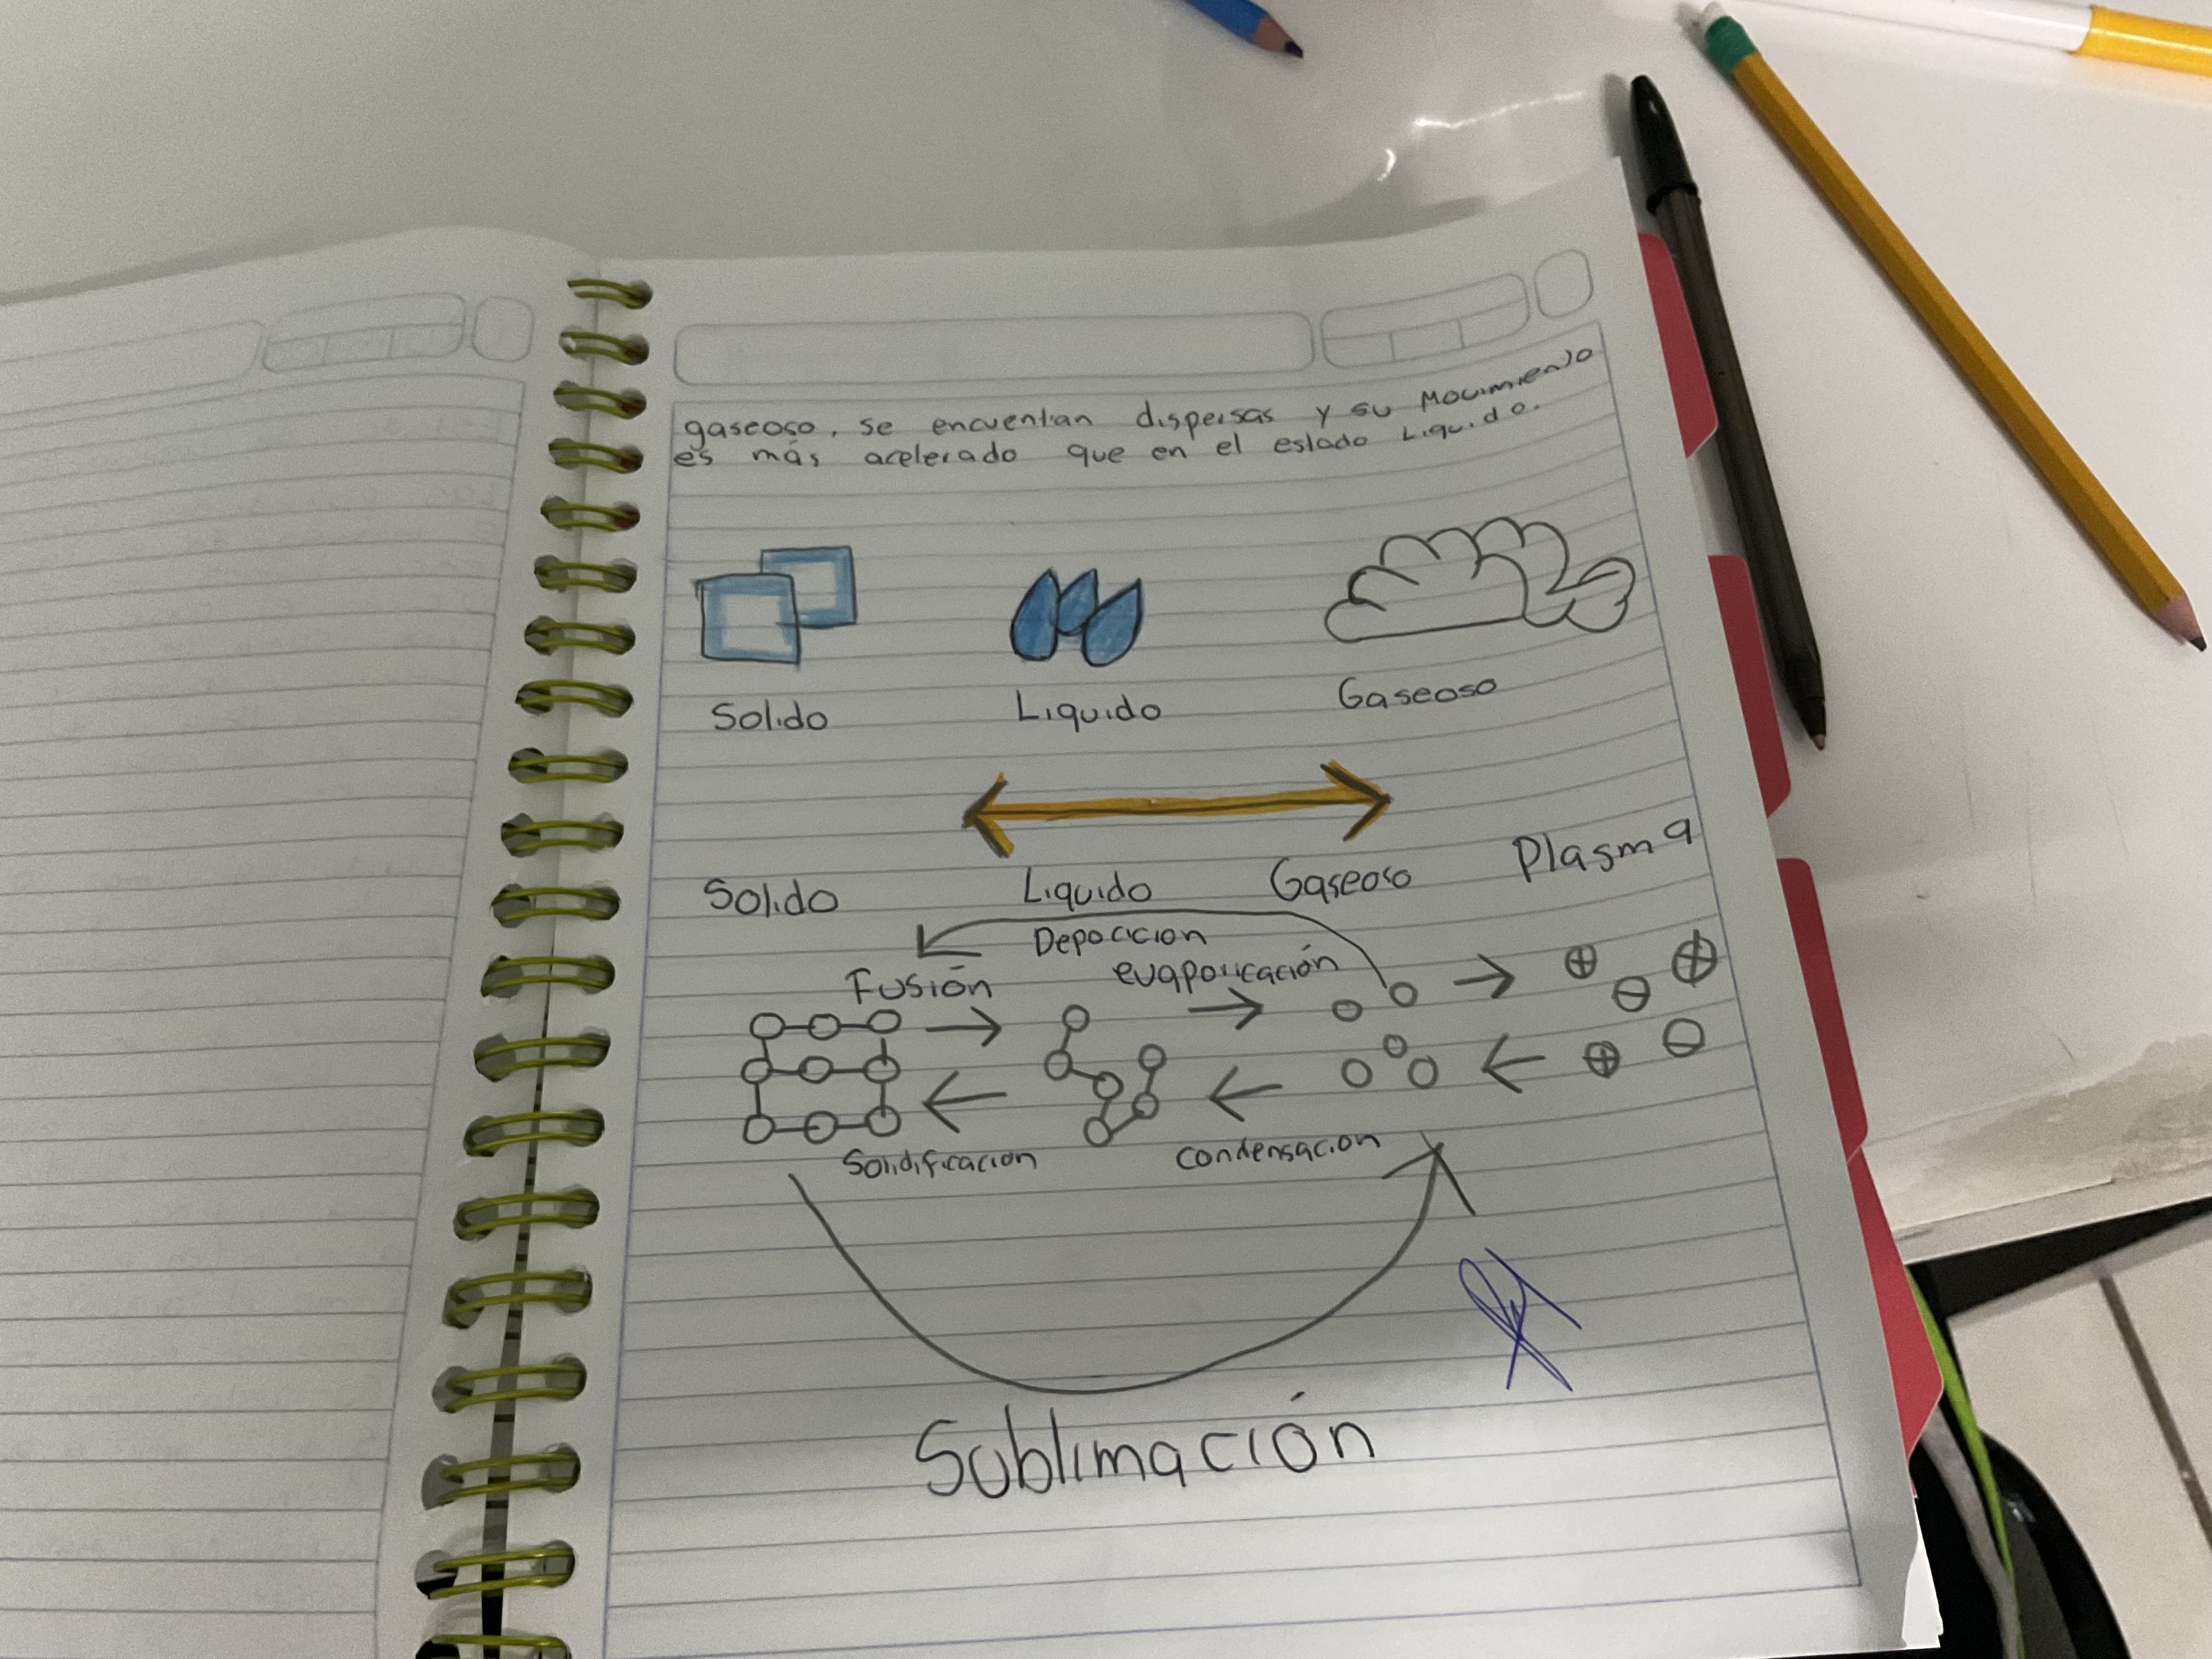 gaseoso, se encuentran dispersas y su Movimiento
es más acelerado que en el estado Liquido.
Solido Liquido Gaseoso
Solido Liquido Gaseoso Plasma
Depocicion
Fusión evaporicación
Solidificacion condensacion
Sublimación